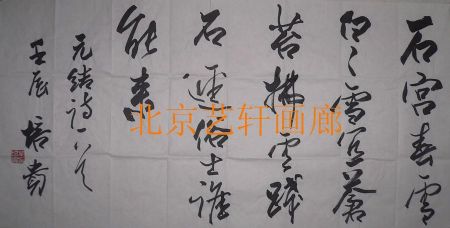 石宫春云
白々雪宜苍
苔拂雲践
石逕俗士谁
能来
元结诗一首
壬辰 培贵
北京艺轩画廊